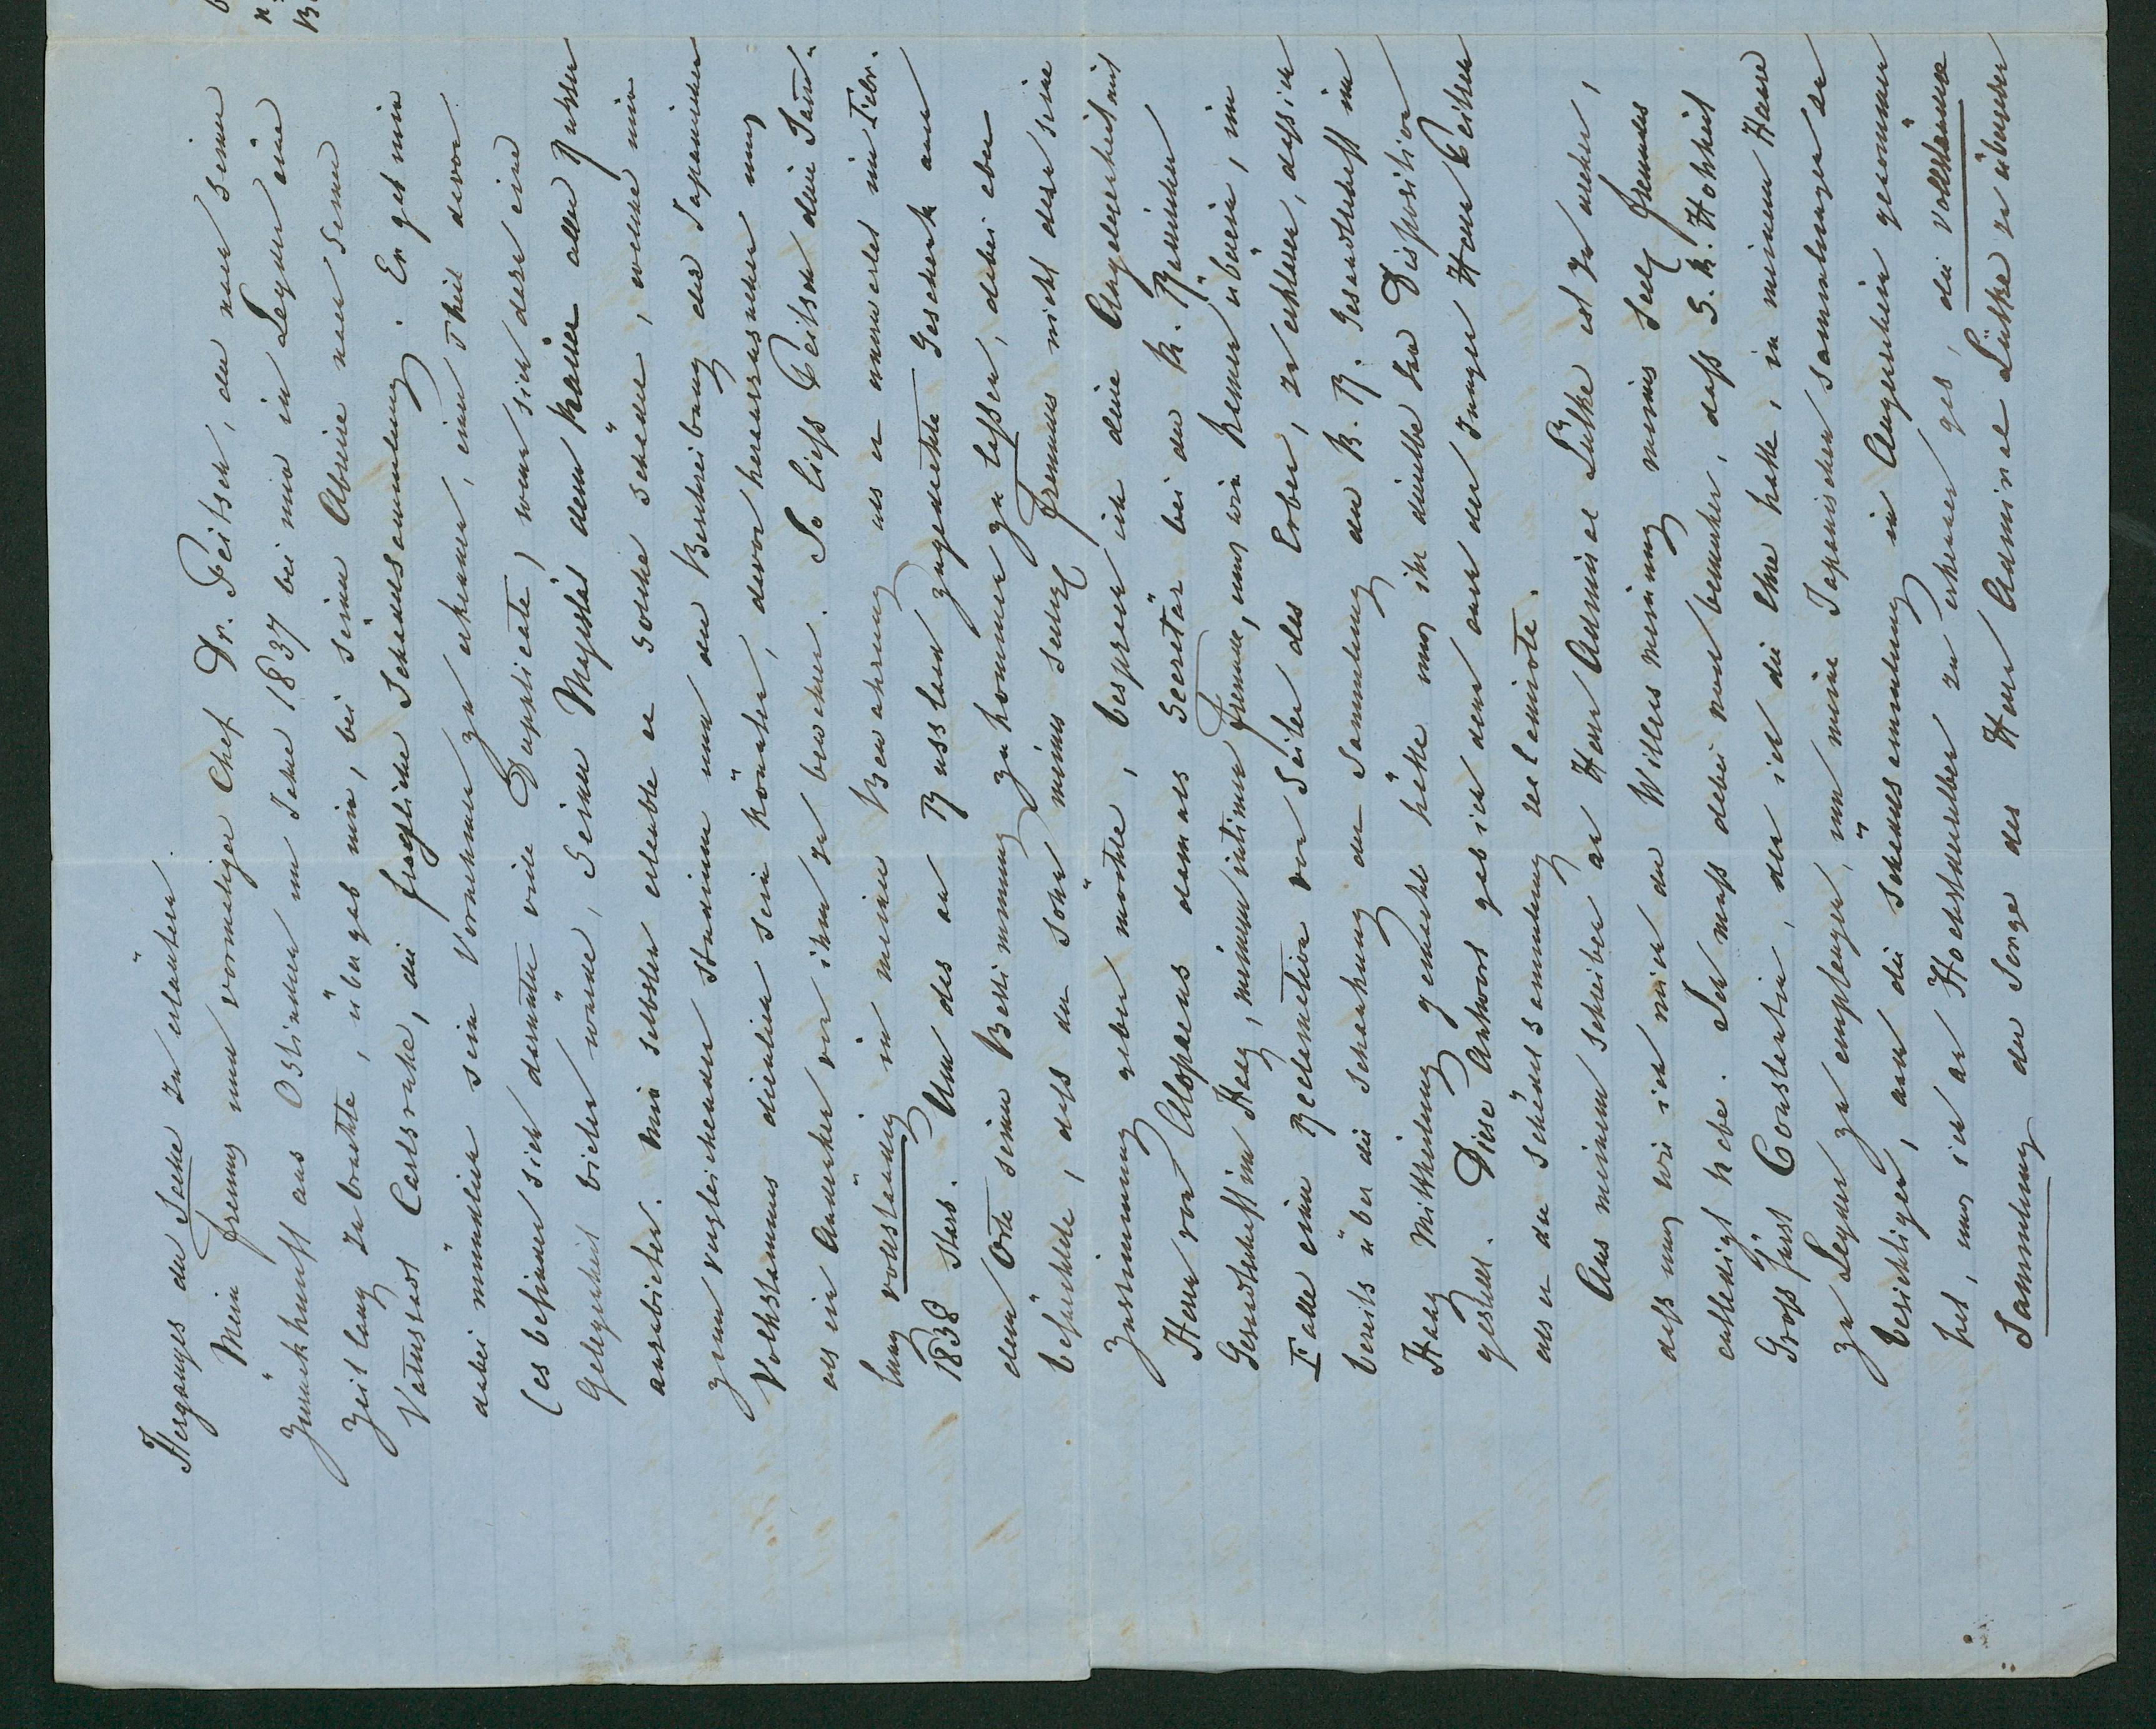 Herganges der Sache zu erläutern.
Mein Freund und vormaliger Chef Dr. Feitsch, der nach seiner
Zurückkunft aus Ostindien im Jahr 1837 bei mir in Leyden eine
Zeit lang zubrachte, übergab mir, bei seiner Abreise nach seiner
Vaterstadt Carlsruhe, die fragliche Schädelsammlung. Er gab mir
dabei mündlich sein Vornehmen zu erkennen, einen Theil davon
(es befinden sich darunter viele Duplicate) wenn sich dazu eine
Gelegenheit bieten würde, Seiner Majestät dem Kaiser aller Russen
anzubieten. Mir selbsten erlaubte er solche Schädel, welche mir
zum vergleichenden Studium und der Beschreibung des Japanischen
Volksstammes dienlich sein könnten, davon herauszusuchen und
als ein Andenken von ihm zu bewahren. So liess Feitsch die Samm-
lung vollständig in meiner Bewahrung als er unerwartet im Febr.
1838 starb. Um das an Russland zugedachte Geschenk am
dem Orte seiner Bestimmung zukommen zu lassen, dabei aber
befürchtete, dass der Sohn meines seelig Freundes nicht dazu seine
Zustimmung geben möchte, besprach ich die Angelegenheit mit
Herrn von Alopaeus damals Secretär bei der K. Russischen
Gesandtschaft im Haag, meinem intimen Freunde, und wir kamen überein, im
Falle einer Reclamation von Seiten des Erben, zu erklären, dass ich
bereits über die Schenkung der Sammlung der K. R. Gesandtschaft im
Haag Mittheilung gemacht hätte und ihr dieselbe zur Disposition
gestellt. Diese Antwort gab ich denn auch dem Jungen Herrn Feitsch
als er die Schädelsammlung reclamirte.
Aus meinem Schreiben an Herrn Admiral Lütke ist zu ersehen,
dass und wie ich mich der Willensmeinung meines Seelg Freundes
entledigt habe. Ich muss dabei noch bemerken, dass S. K. Hohheit
Grossfürst Constantin, den ich die Ehre hatte, in meinem Hause
zu Leyden zu empfangen, um meine Japanischen Sammlungen zu
besichtigen, auch die Schädelsammlung in Augenschein genommen
hat, und ich an Hochdenselben zu erkennen gab, die vollständige
Sammlung der Sorge des Herrn Admiral Lütke zu überlassen